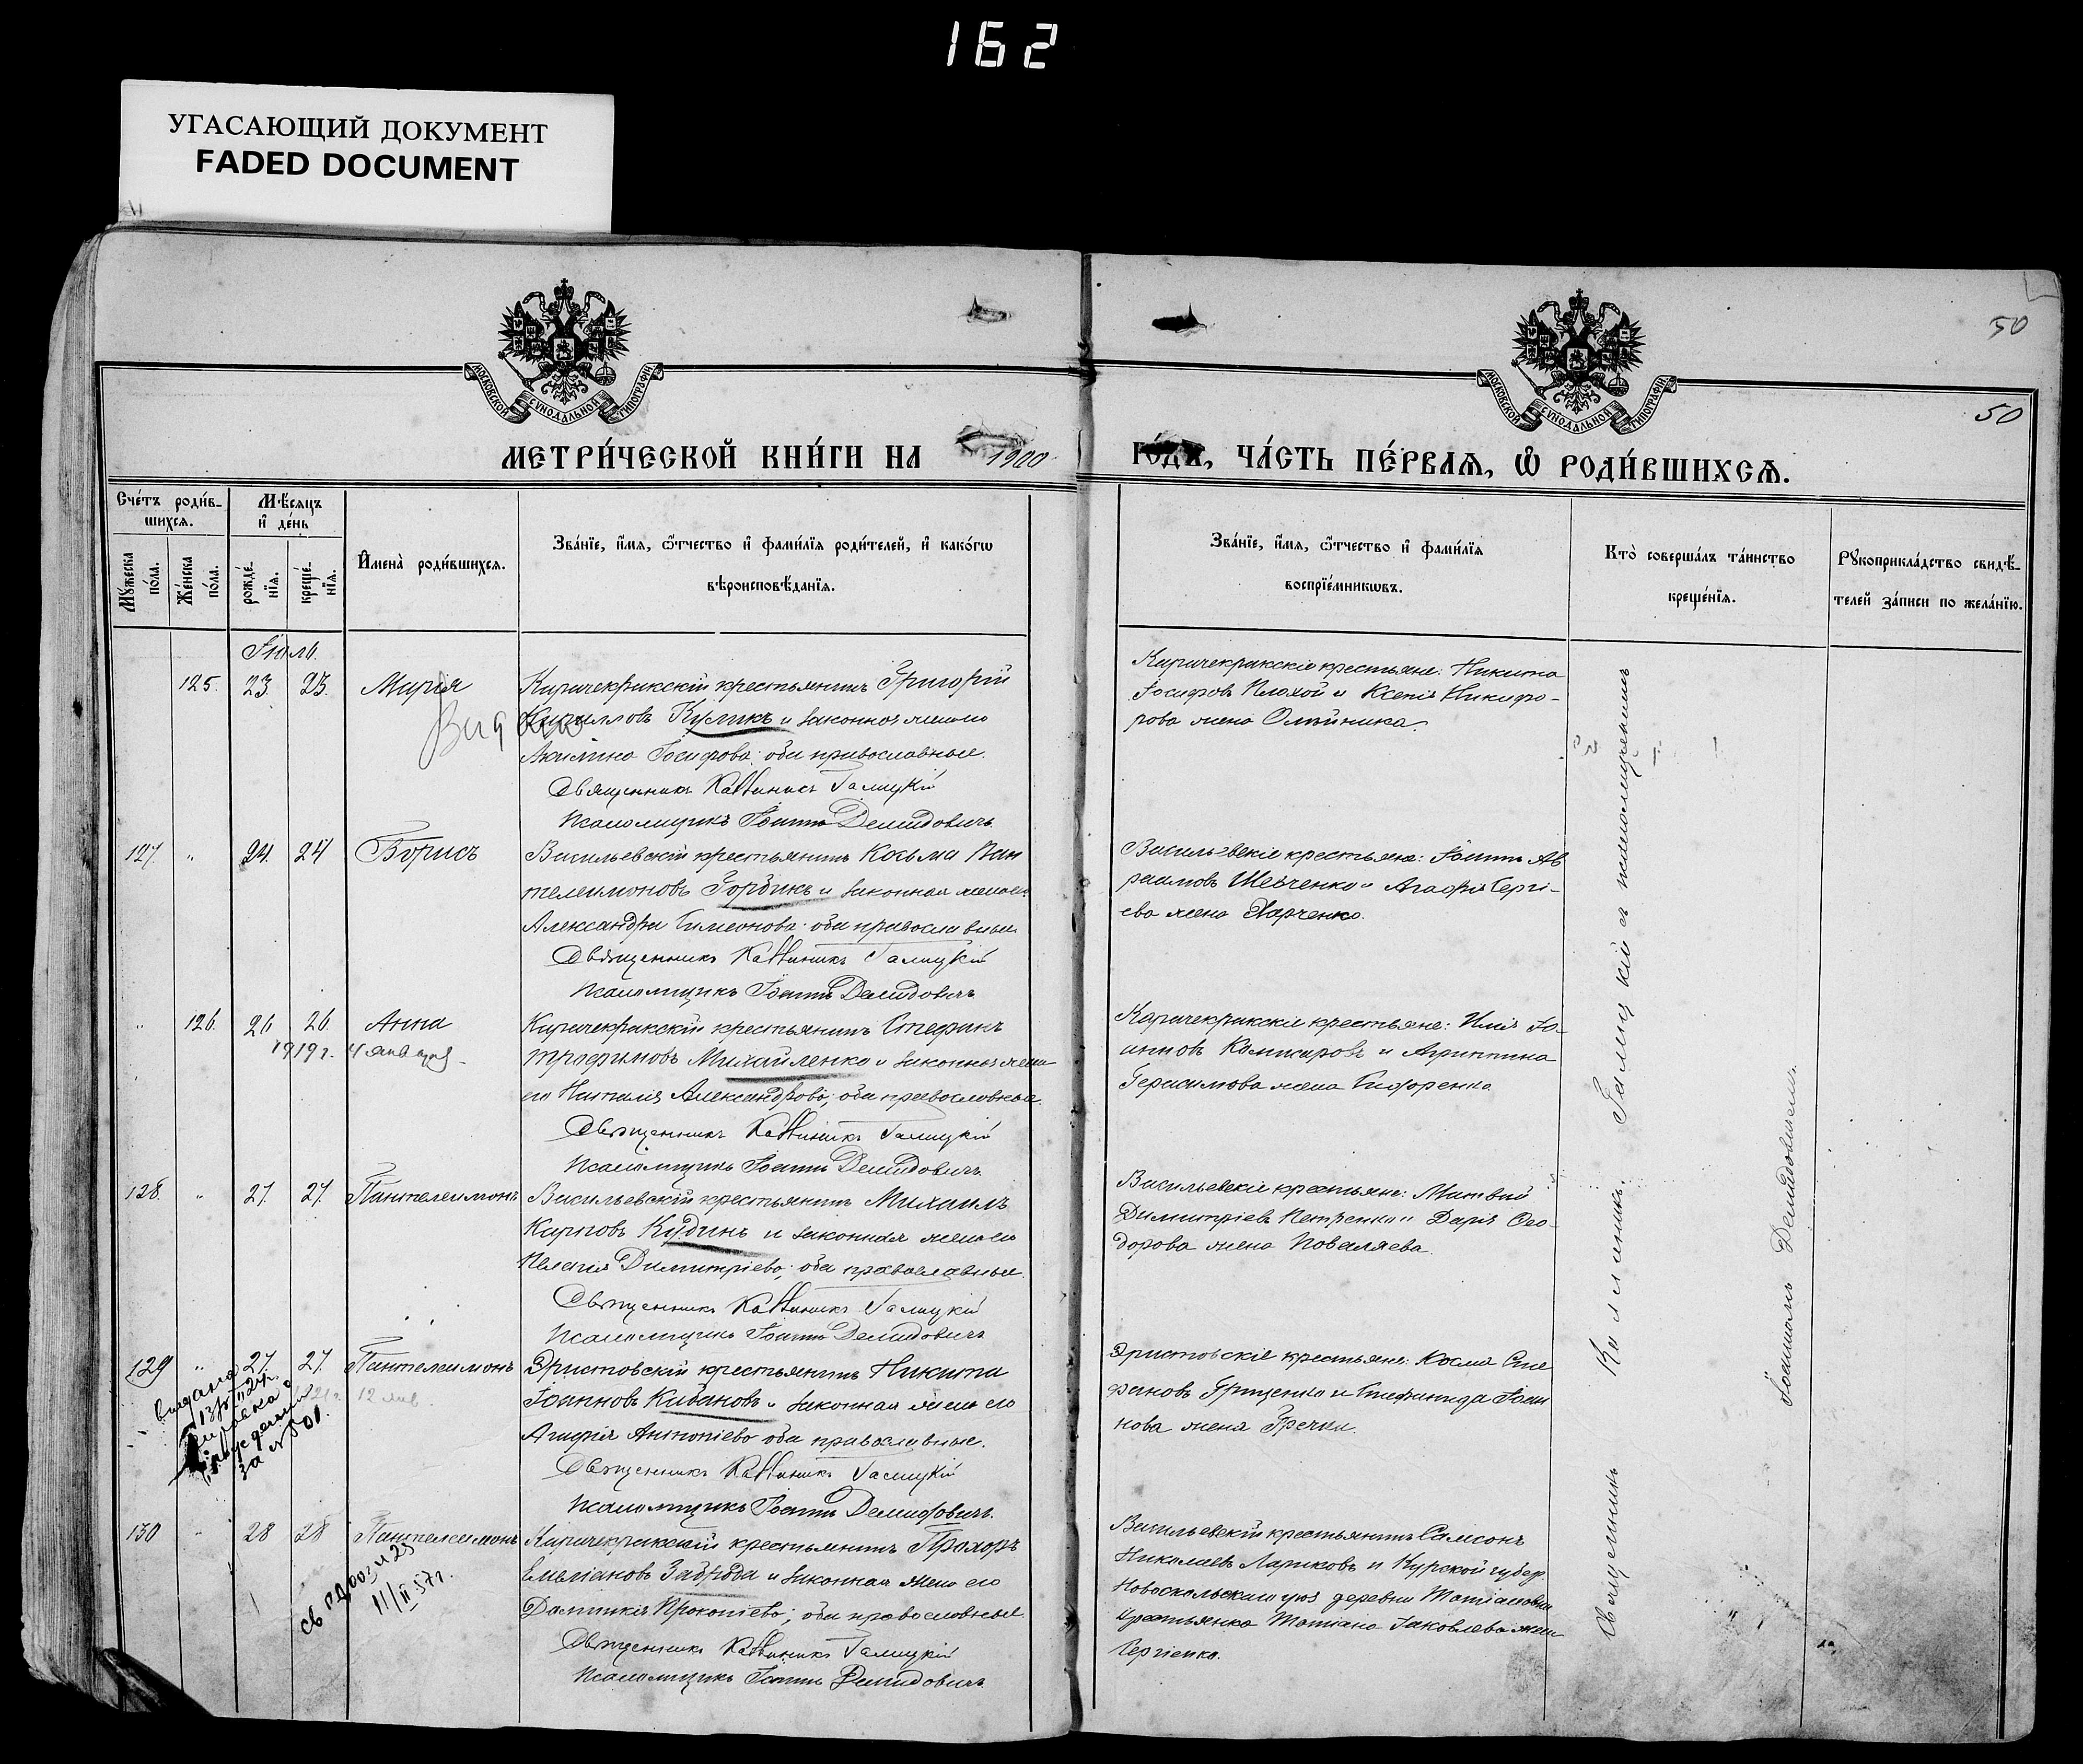 162
УГАСАЮЩИЙ ДОКУМЕНТ
FADED DOCUMENT
50
МОСКОВСКОЙ СѴНОДАЛЬНОЙ ТИПОГРАФІИ
МОСКОВСКОЙ СѴНОДАЛЬНОЙ ТИПОГРАФІИ
50
МЕТРИ́ЧЕСКОЙ КНИ́ГИ НА 1900
ГО́ДЪ, ЧА́СТЬ ПЕ́РВАѦ, Ѽ РОДИ́ВШИХСѦ.
Сче́тъ роди́в-
шихсѧ.
Мѣ́сѧцъ
и҆ де́нь
Мꙋ́жеска по́ла.
Же́нска по́ла.
рожде́-
нїѧ.
креще́-
нїѧ.
И҆мена̀ роди́вшихсѧ.
Зва́нїе, и҆́мѧ, ѻ҆́тчество и҆ фами́лїѧ роди́телей, и҆ како́гѡ
вѣроисповѣ́данїѧ.
Зва́нїе, и҆́мѧ, ѻ҆́тчество и҆ фами́лїѧ
воспрїе́мникѡвъ.
Кто̀ соверша́лъ та́инство
креще́нїѧ.
Рꙋкоприкла́дство свидѣ́-
телей за́писи по жела́нїю.
Іюль.
125. 23 23. Марія
Каричекракскій крестьянинъ Григорій
Кирилловъ Куликъ и законная жена его
Акилина Іосифова; оба православные.
Священникъ Каллиникъ Галицкій
Псаломщикъ Іоаннъ Демидовичъ.
Каричекракскіе крестьяне: Никита
Іосифовъ Плохой и Ксенія Никифо-
рова жена Олейника.
127. " 24. 24 Борисъ
Васильевскій крестьянинъ Косьма Пан
телеимоновъ Горбикъ и законная жена его
Александра Симеонова; оба православные
Священникъ Каллиникъ Галицкій
Псаломщикъ Іоаннъ Демидовичъ
Васильевскіе крестьяне: Іоаннъ Ав
раамовъ Шевченко и Агафія Сергі-
ева жена Харченко.
" 126. 26 26. Анна
1919 г. 4 января
Каричекракскій крестьянинъ Стефанъ
Трофимовъ Михайленко и законная жена
его Наталія Александрова; оба православные.
Священникъ Каллиникъ Галицкій
Псаломщикъ Іоаннъ Демидовичъ.
Каричекракскіе крестьяне: Илія Іо-
анновъ Комисаровъ и Агриппина
Герасимова жена Сидоренка
128. " 27. 27. Пантелеимонъ
Васильевскій крестьянинъ Михаилъ
Карповъ Кудинъ и законная жена его
Пелагія Димитріева; оба православные.
Священникъ Каллиникъ Галицкій
Псаломщикъ Іоаннъ Демидовичъ
Васильевскіе крестьяне: Матвей
Димитріевъ Петренко и Дарія Ѳео-
дорова жена Поваляева.
129 " 27. 27. Пантелеимонъ
12 янв
выдана
за № 501.
Эристовскій крестьянинъ Никита
Іоанновъ Кибановъ и законная жена его
Агафія Антоніева оба православные.
Священникъ Каллиникъ Галицкій
Псаломщикъ Іоаннъ Демидовичъ.
Эристовскіе крестьяне: Косма Сте
фановъ Гриценко и Стефанида Іоан
нова жена Гречки.
130 " 28 28 Пантелеимонъ
11/II 57 г.
Каричекракскій крестьянинъ Прохоръ
Емеліановъ Заброда и законная жена его
Домникія Прокопіева; оба православные
Священникъ Каллиникъ Галицкій
Псаломщикъ Іоаннъ Демидовичъ.
Васильевскій крестьянинъ Самсонъ
Николаевъ Лариковъ и Курской губер
Новоскольскаго уез деревни
крестьянка Татіана Іаковлева жена
Сергіенко.
Священникъ Каллиникъ Галицкій съ псаломщикомъ
Іоанномъ Демидовичемъ.